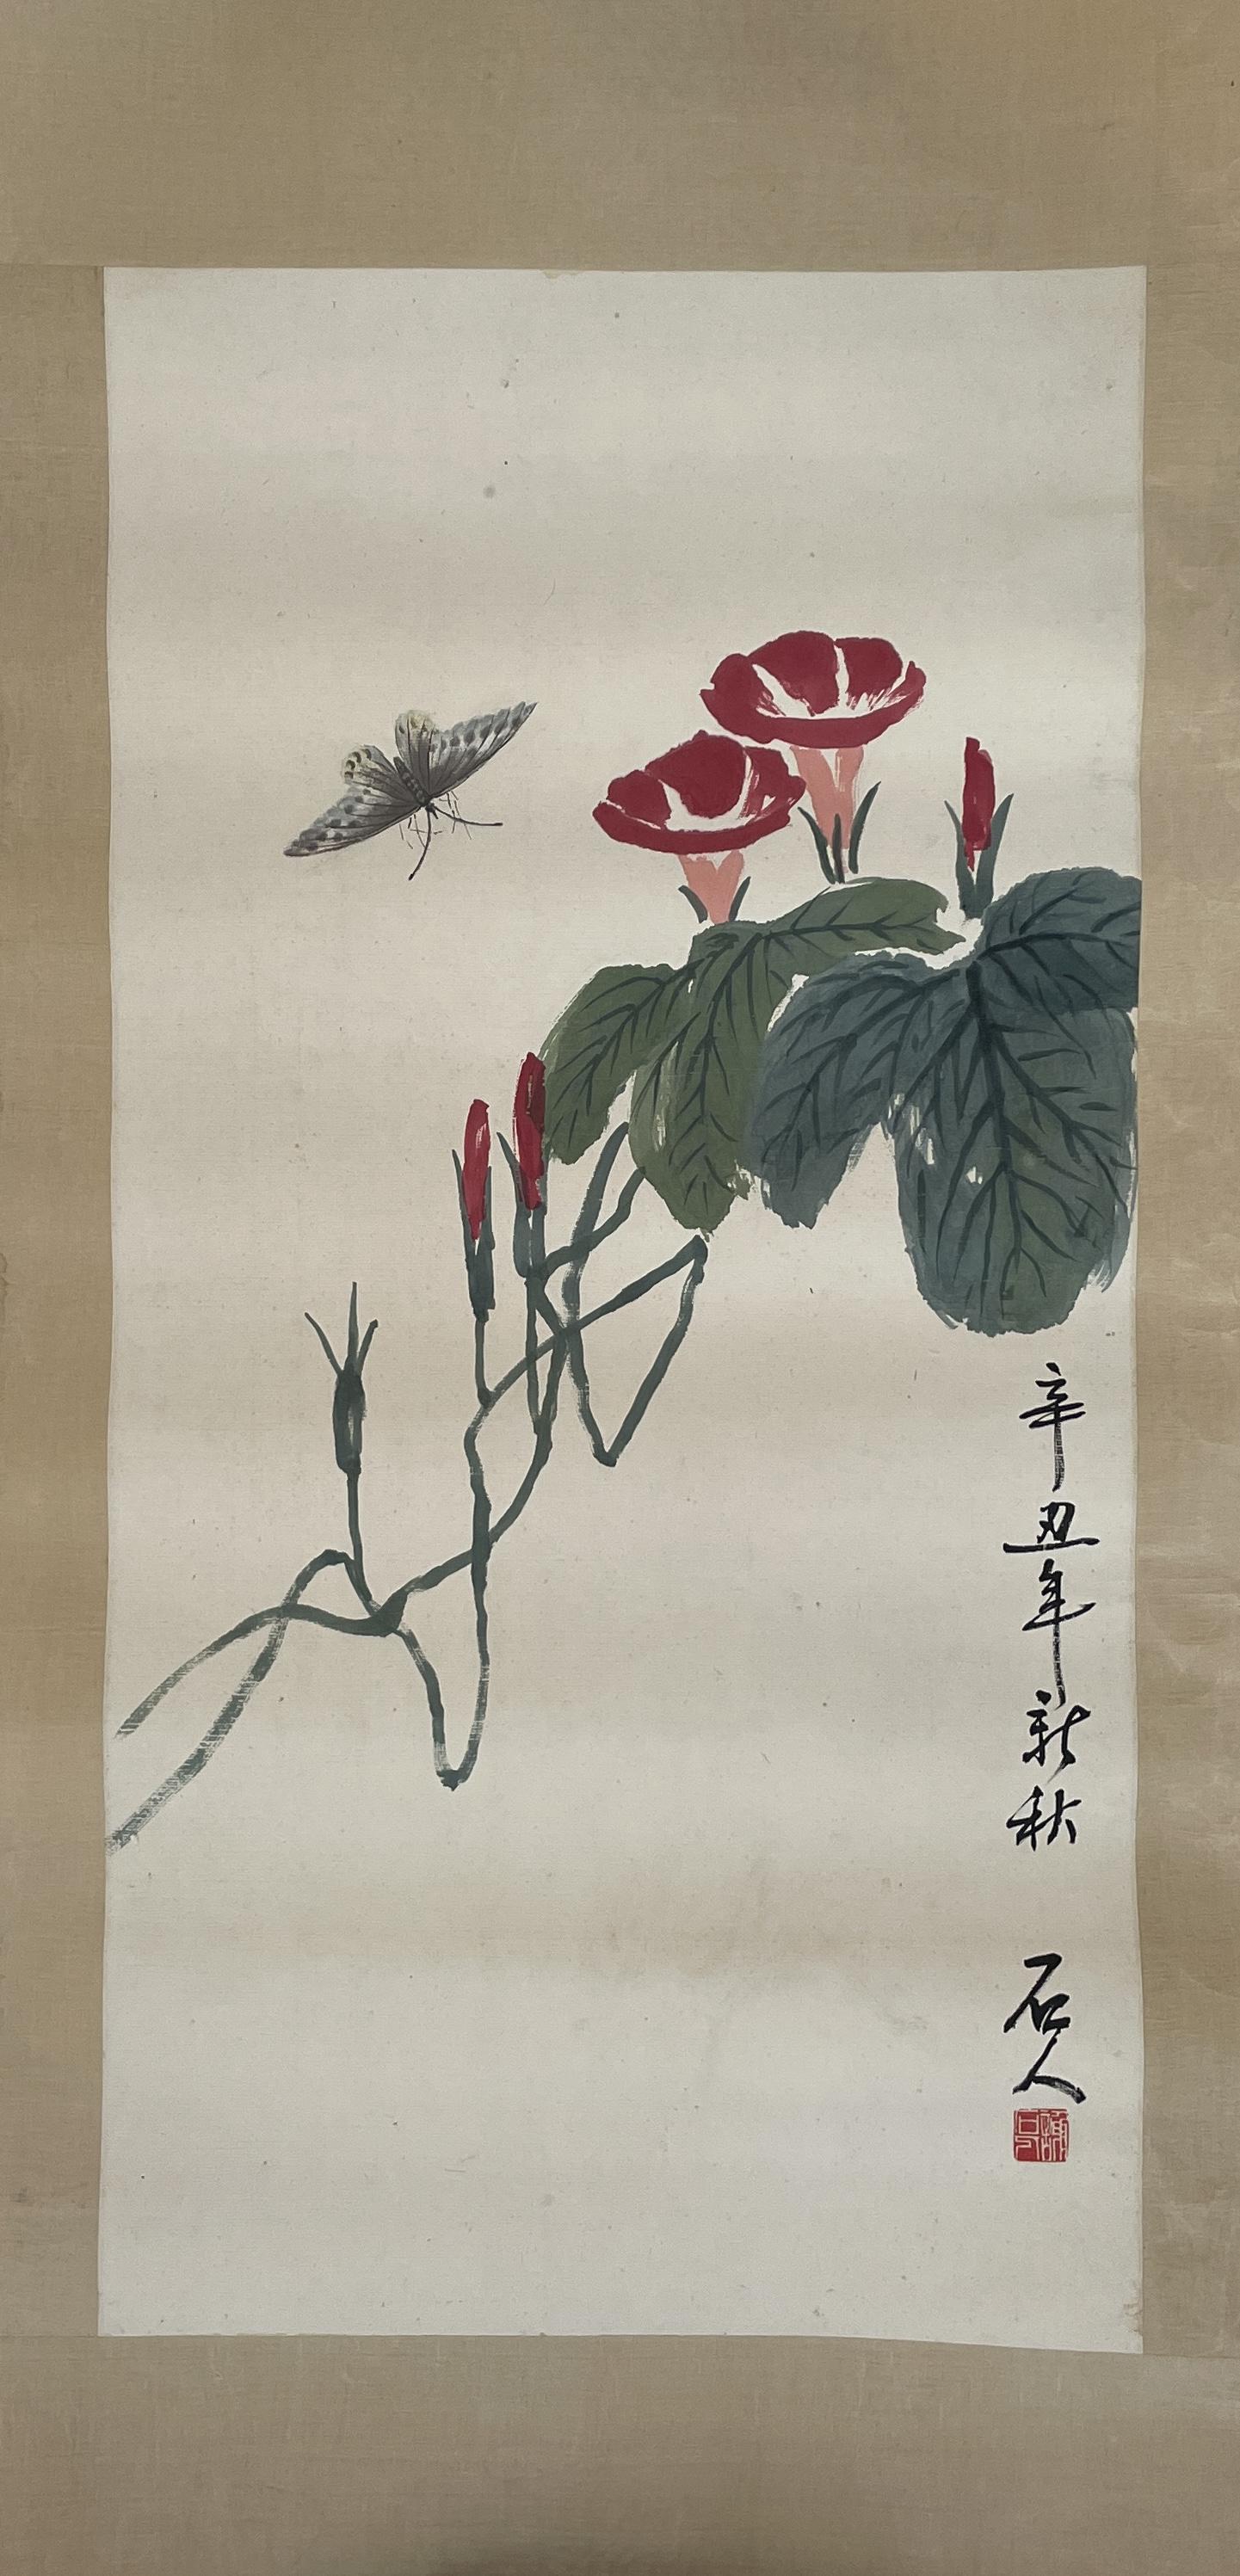 辛丑年新秋
石人